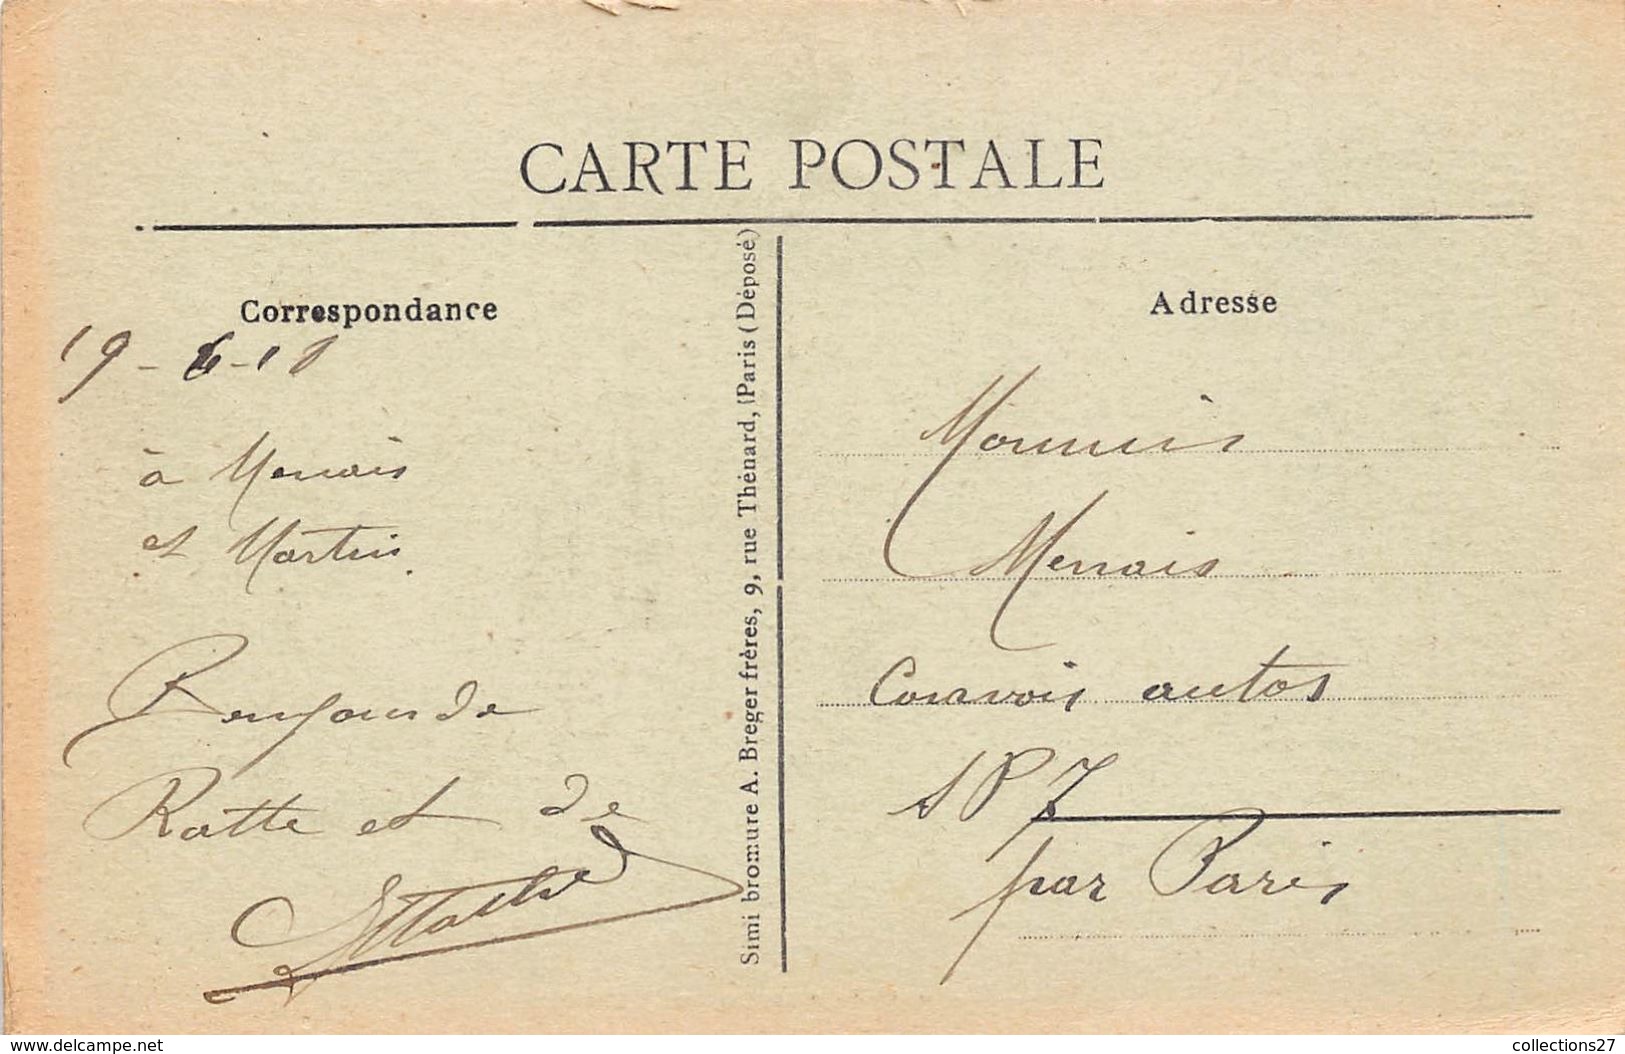 CARTE POSTALE
Correspondance
19-6-18
à Menais
et Martin.
Rattte et de
Simi bromure A. Breger frères, 9, rue Thénard, (Paris (Déposé)
Adresse
Menais
autos
SP 7
par Paris
delcampe.net
collections27